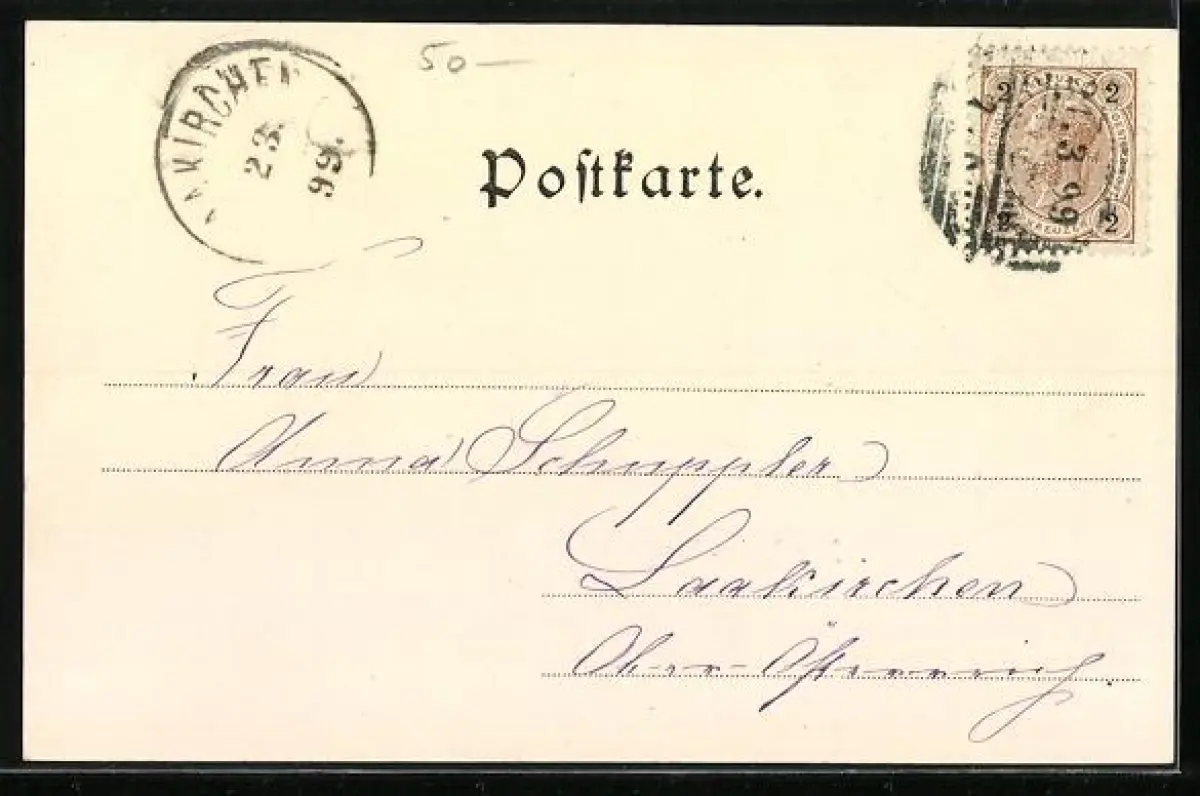 50—
AKIRCHEN
23.
99.
Postkarte.
2 2
3 99
2 2
Frau
Anna Schuppler
Laakirchen
Ober-Österreich.